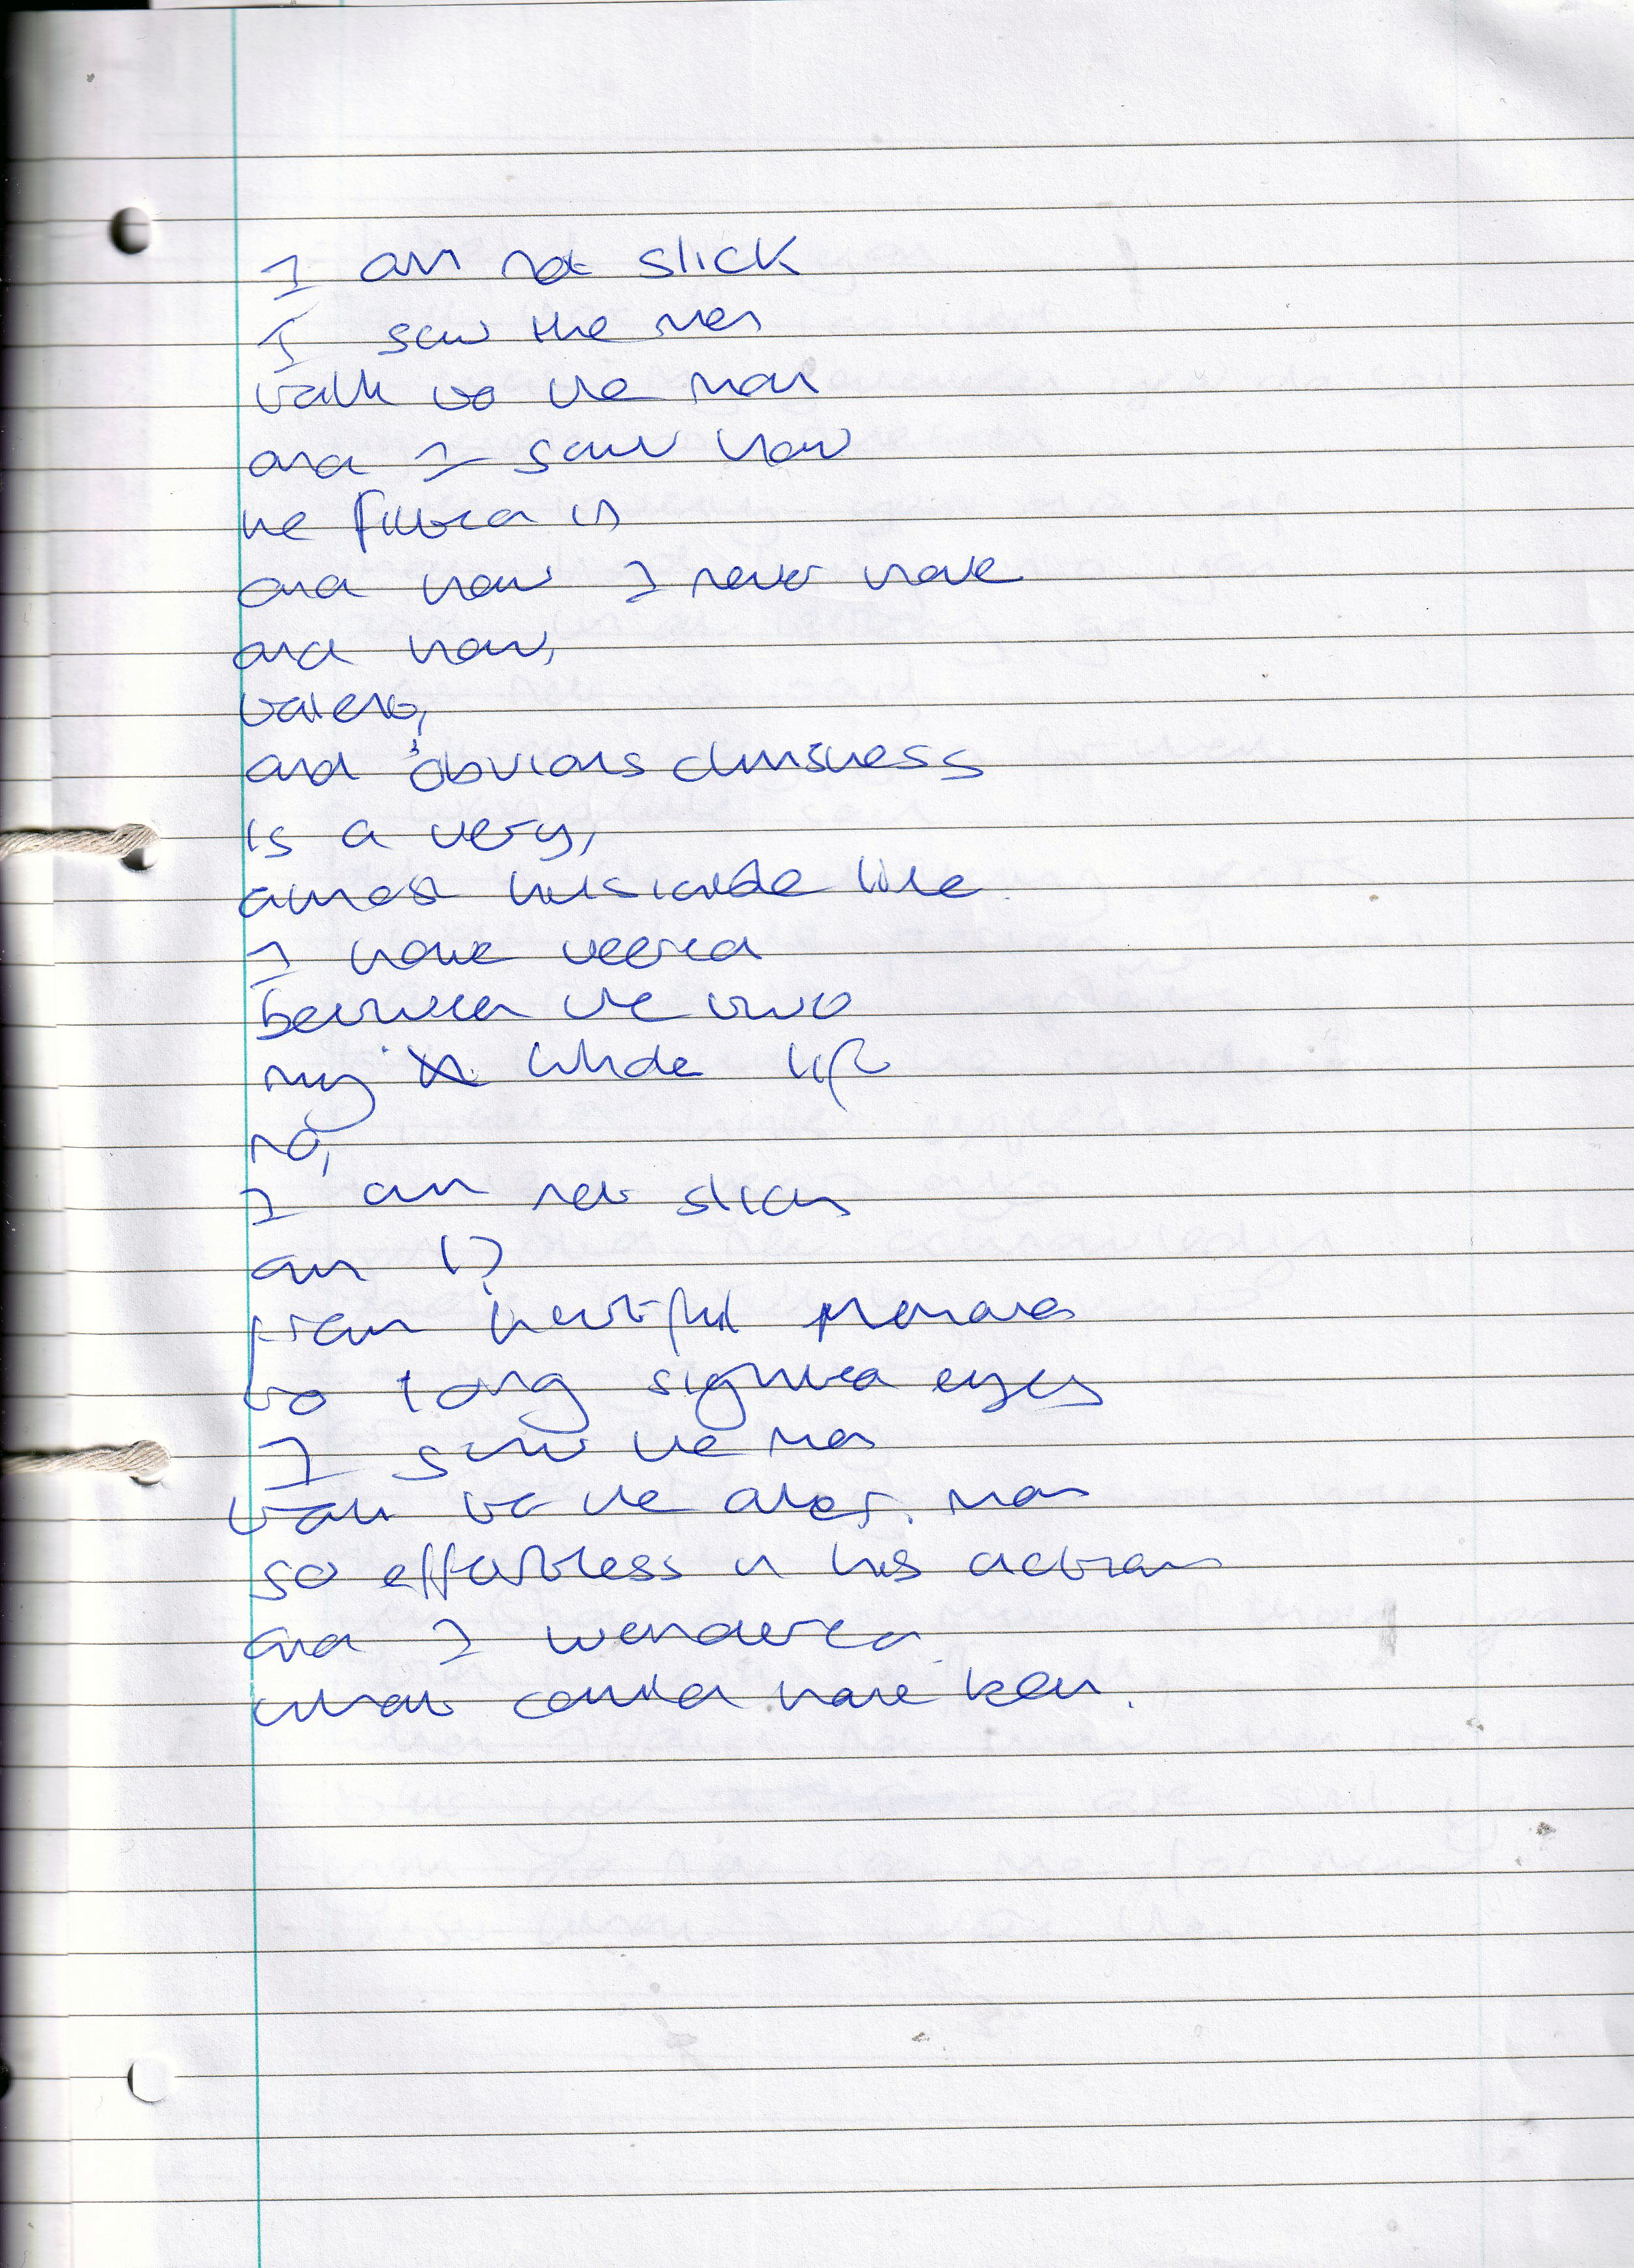 I am not slick
I saw the men
talk to the man
and I saw how
he flirted is
and how I never have
and how,
talent,
and obvious clumsiness
is a very,
almost invisible line
I have veered
between the two
my whole life
no,
I am not slick
am I?
from hurtful
to long sighted eyes
I saw the man
talk to the other man
so effortless in his actions
and I wondered
what could have been.